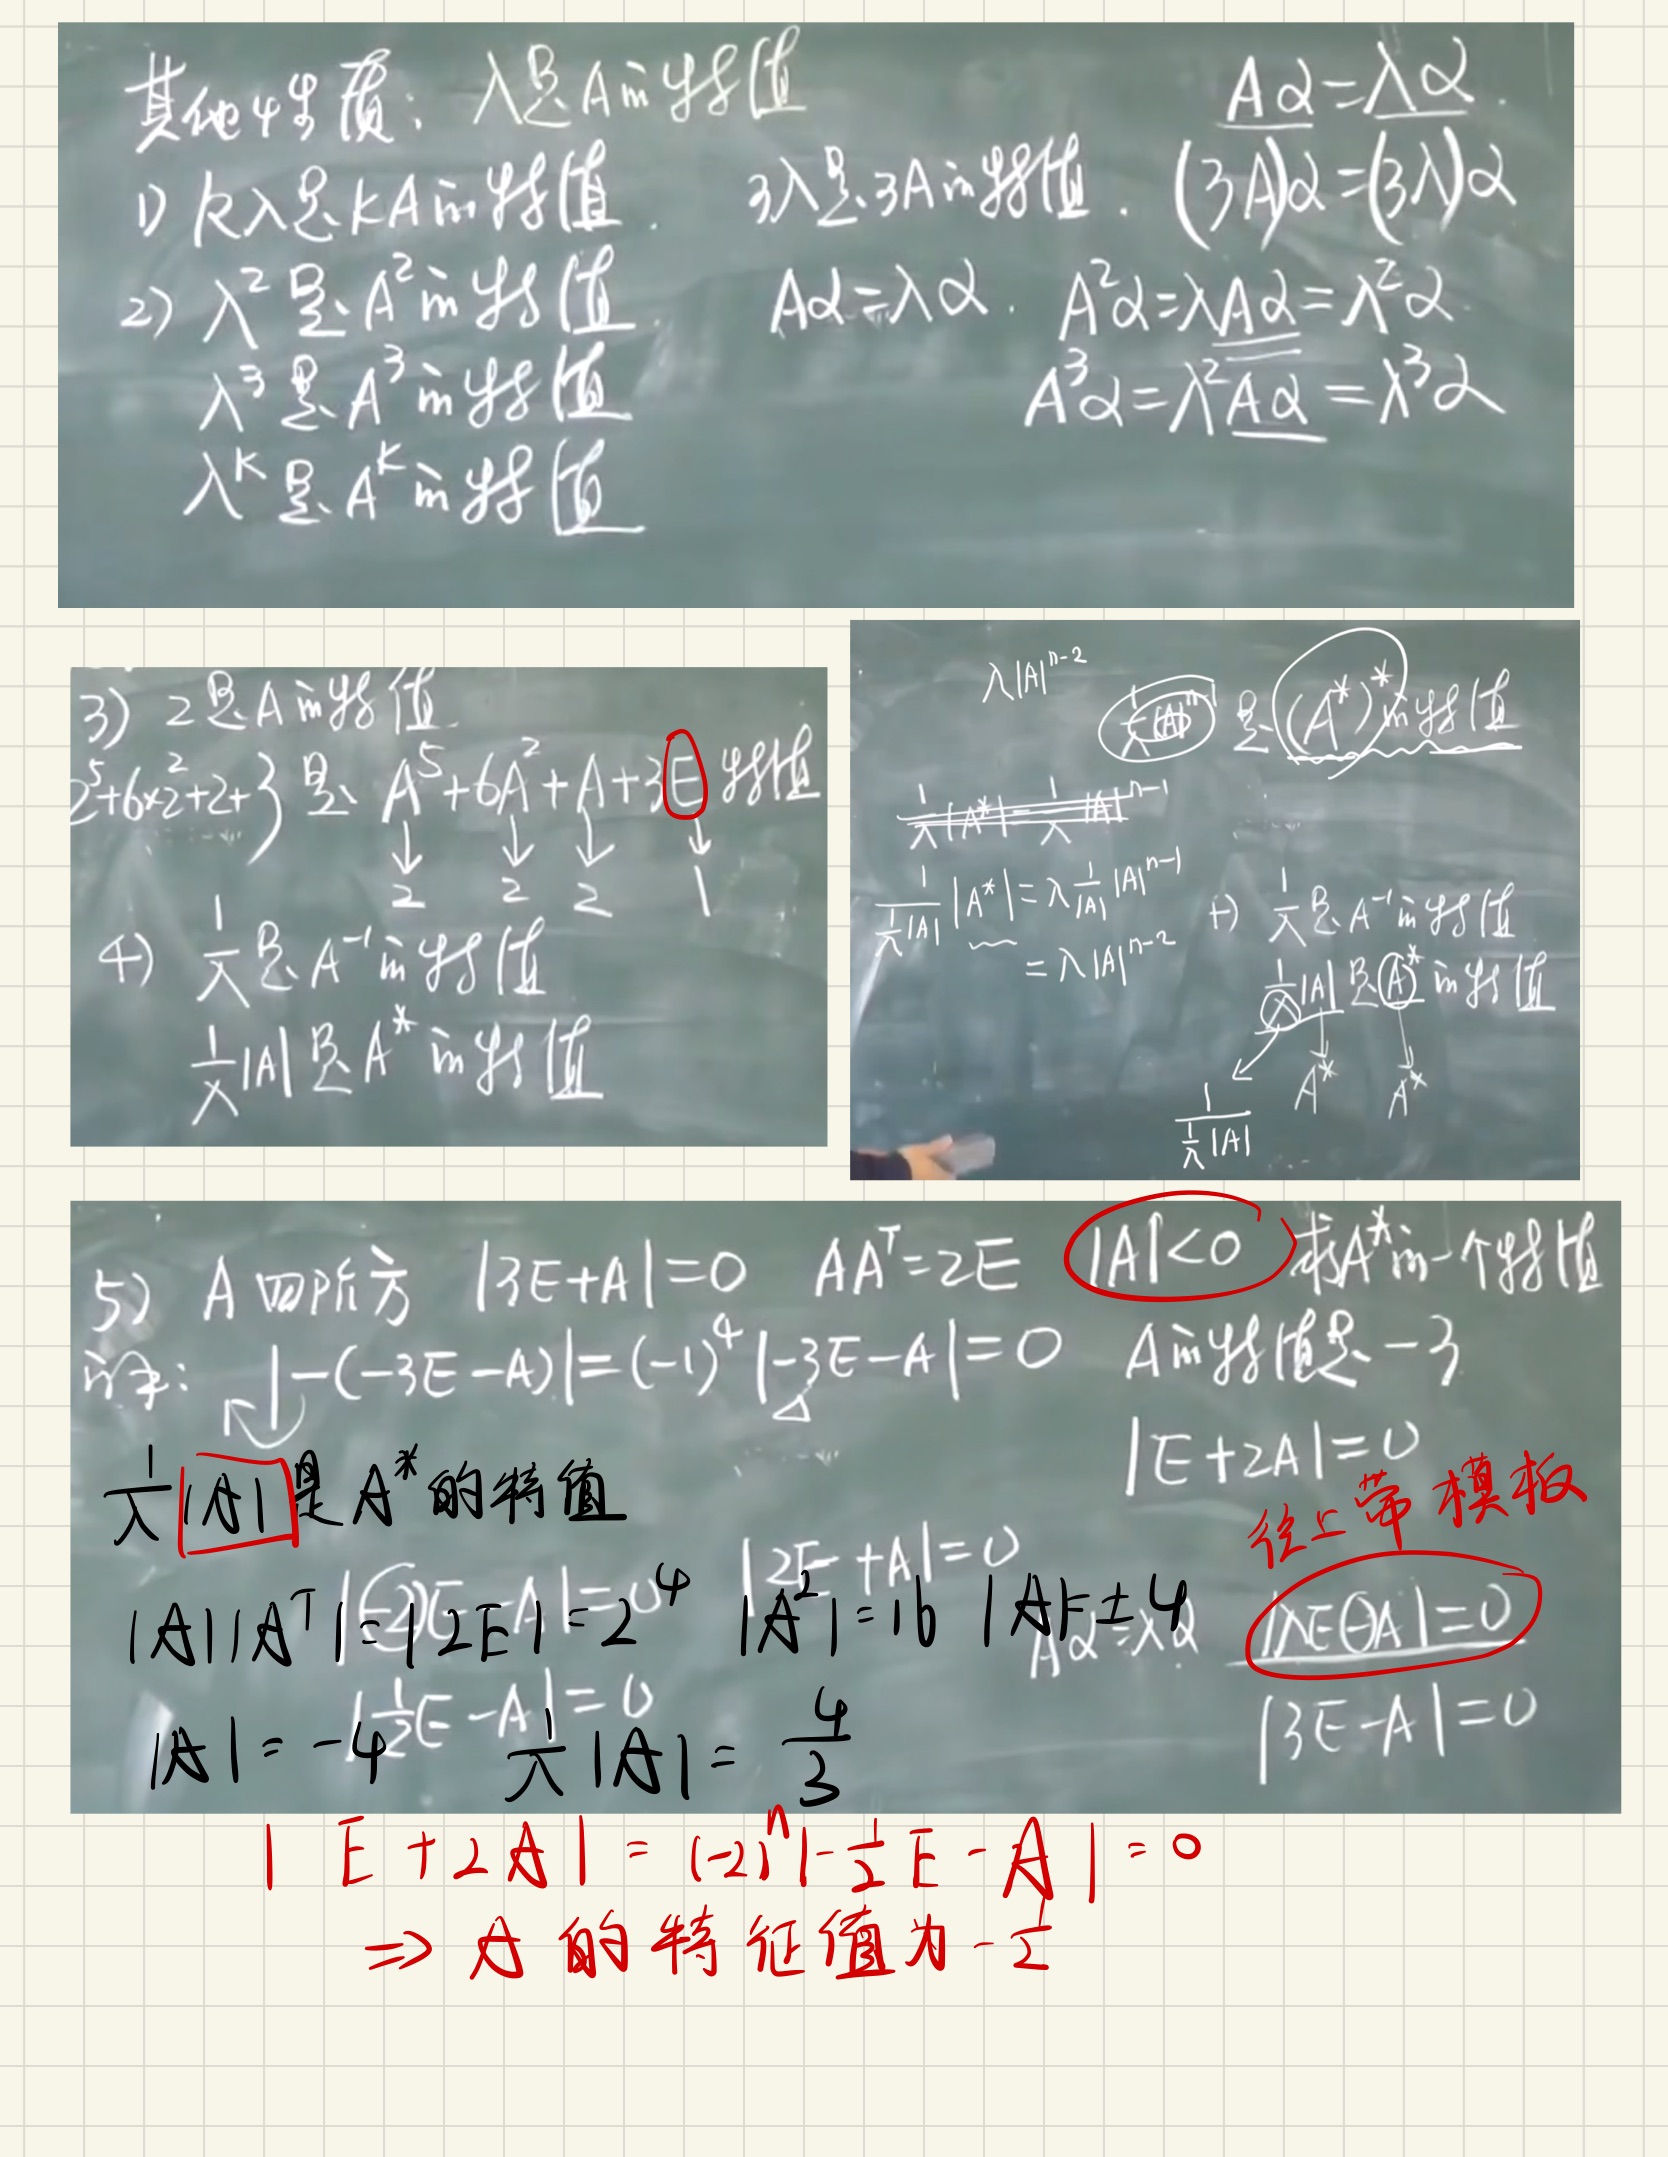 其他性质: λ是A的特值 Aα=λα.
1) kλ是kA的特值. 3λ是3A的特值. (3A)α=(3λ)α
2) λ²是A²的特值. Aα=λα. A²α=λAα=λ²α.
λ³是A³的特值 A³α=λ²Aα=λ³α
λᴷ是Aᴷ的特值
3) 2是A的特值
2⁵+6×2²+2+3 是 A⁵+6A²+A+3E 特值
↓ ↓ ↓ ↓
2 2 2 1
4) 1/λ 是A⁻¹的特值
1/λ |A| 是A*的特值
λ|A|ⁿ⁻²
是 (A*)*的特值
1/λ |A*| = 1/λ |A|ⁿ⁻¹
1/(1/λ |A|) |A*| = λ 1/|A| |A|ⁿ⁻¹
= λ|A|ⁿ⁻²
4) 1/λ 是A⁻¹的特值
1/λ |A| 是A*的特值
A* A*
1/(1/λ |A|)
5) A 四阶方 |3E+A|=0 AAᵀ=2E |A|<0 求A*的一个特值
解: |-(-3E-A)|=(-1)⁴|-3E-A|=0 A的特值是-3
|E+2A|=0
往上带模板
1/λ |A| 是A*的特值
|2E+A|=0
|(-2)E-A|=0
|A||Aᵀ|=|2E|=2⁴ |A²|=16 |A|=±4
Aα=λα |λE-A|=0
|1/2 E-A|=0 |3E-A|=0
|A|=-4 1/λ |A| = 4/3
|E+2A|=(-2)ⁿ|-1/2 E-A|=0
⇒ A的特征值为-1/2